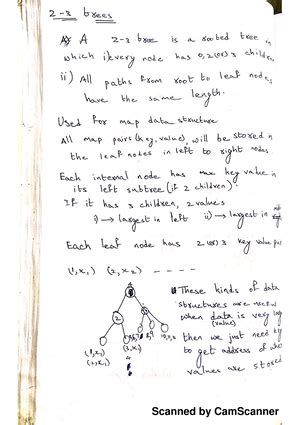 2-3 trees
A 2-3 tree is a rooted tree in
which i) every node has 0,2(or)3 children
ii) All paths from root to leaf nodes
have the same length.
Used for map data structure
All map pairs (key, value), will be stored in
the leaf nodes in left to right nodes.
Each internal node has max key value in
its left subtree (if 2 children).
If it has 3 children, 2 values
i) → largest in left ii) → largest in
Each leaf node has 2(or)3 key value
(1,x₁) (2,x₂) - - - -
These kinds of data
structures are useful
when data is very
(value)
then we just need
to get address of
values are stored
2
(1,x₁)
(2,x₂)
Scanned by CamScanner